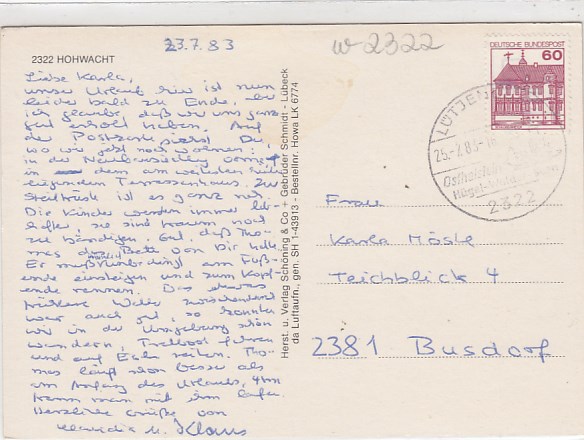 23.7.83
w 2322
2322 HOHWACHT
Liebe Karla,
unser Urlaub hier ist nun
leider bald zu Ende, aber
ich glaube, daß wir uns ganz
gut erholt haben. Auf
der Postkarte siehst Du,
wo wir jetzt noch wohnen:
in der Neubausiedlung
in dem am weitesten
liegenden Terrassenhaus. Zur
ist es ganz nah.
Die Kinder werden immer leb-
hafter, sie sind kaum noch
zu bändigen. Gut, daß Tho-
mas das Bett von Dir hatte.
Er muß nämlich unbedingt am Fuß-
ende einsteigen und zum Kopf-
ende rennen. Das etwas
kühlere Wetter zwischendurch
war auch gut, so konnten
wir in der Umgebung schön
wandern, Tretboot fahren
und auf Eseln reiten. Tho-
mas läuft schon besser als
am Anfang des Urlaubs, 4km
kann man mit ihm laufen.
Herzliche Grüße von
Claudia u. Klaus
Herst. u. Verlag Schöning & Co + Gebrüder Schmidt - Lübeck
da Luftaufn., gen.: SH 1-43913 - Bestellnr. Howa LK 6774
DEUTSCHE BUNDESPOST
60
LÜTJEN
2322
Frau
Karla Möske
Teichblick 4
2381 Busdorf